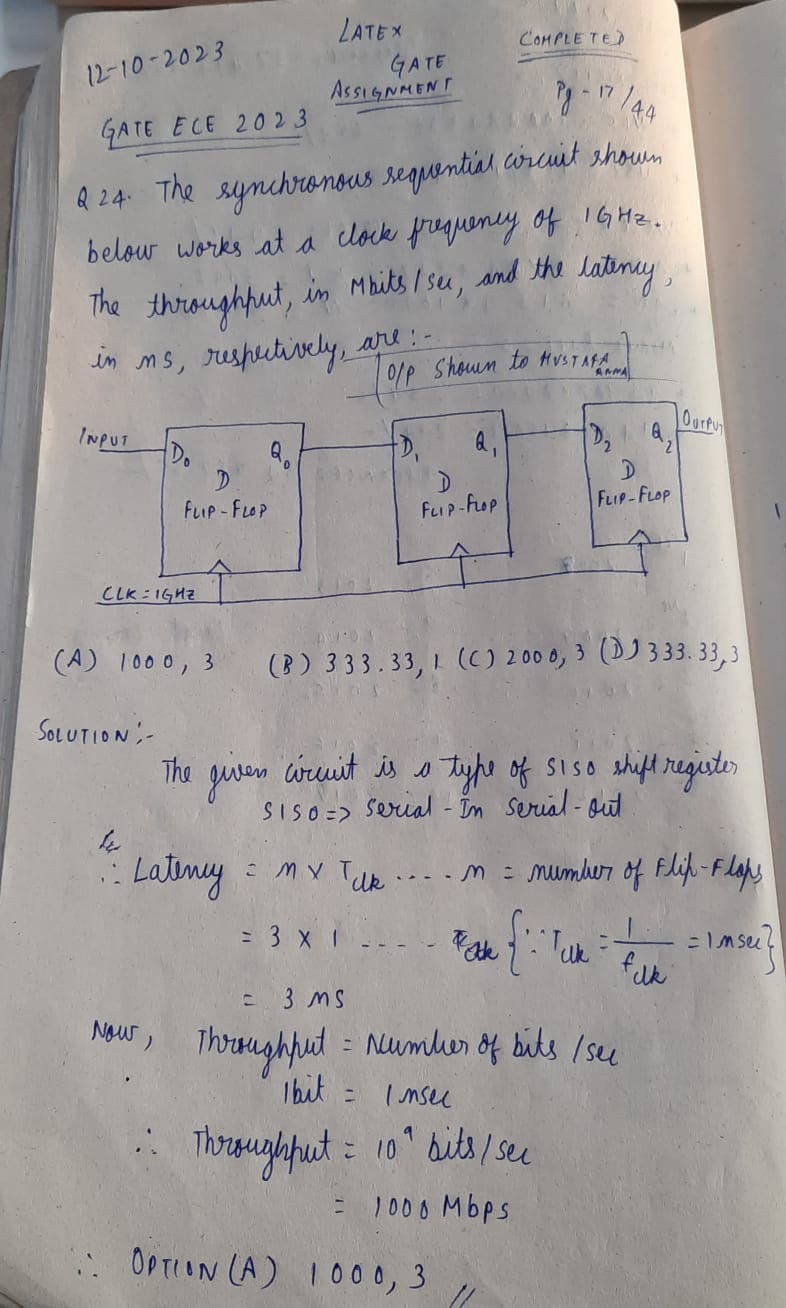 12-10-2023
LATEX
GATE
ASSIGNMENT
COMPLETED
Pg - 17/44
GATE ECE 2023
Q 24. The synchronous sequential circuit shown
below works at a clock frequency of 1GHz.
The throughput, in Mbits/sec, and the latency,
in ns, respectively, are :-
O/P Shown to MUSTAFA
INPUT
D0 Q0
D
FLIP-FLOP
D1 Q1
D
FLIP-FLOP
D2 Q2
D
FLIP-FLOP
OUTPUT
CLK = 1GHZ
(A) 1000, 3 (B) 333.33, 1 (C) 2000, 3 (D) 333.33, 3
SOLUTION :-
The given circuit is a type of SISO shift register
SISO => Serial-In Serial-out
∴ Latency = n x Tclk .... n = number of Flip-Flops
= 3 x 1 ---- {∵ Tclk = 1/fclk = 1nsec}
= 3 ns
Now, Throughput = Number of bits /sec
1bit = 1nsec
∴ Throughput = 10⁹ bits/sec
= 1000 Mbps
∴ OPTION (A) 1000, 3 //